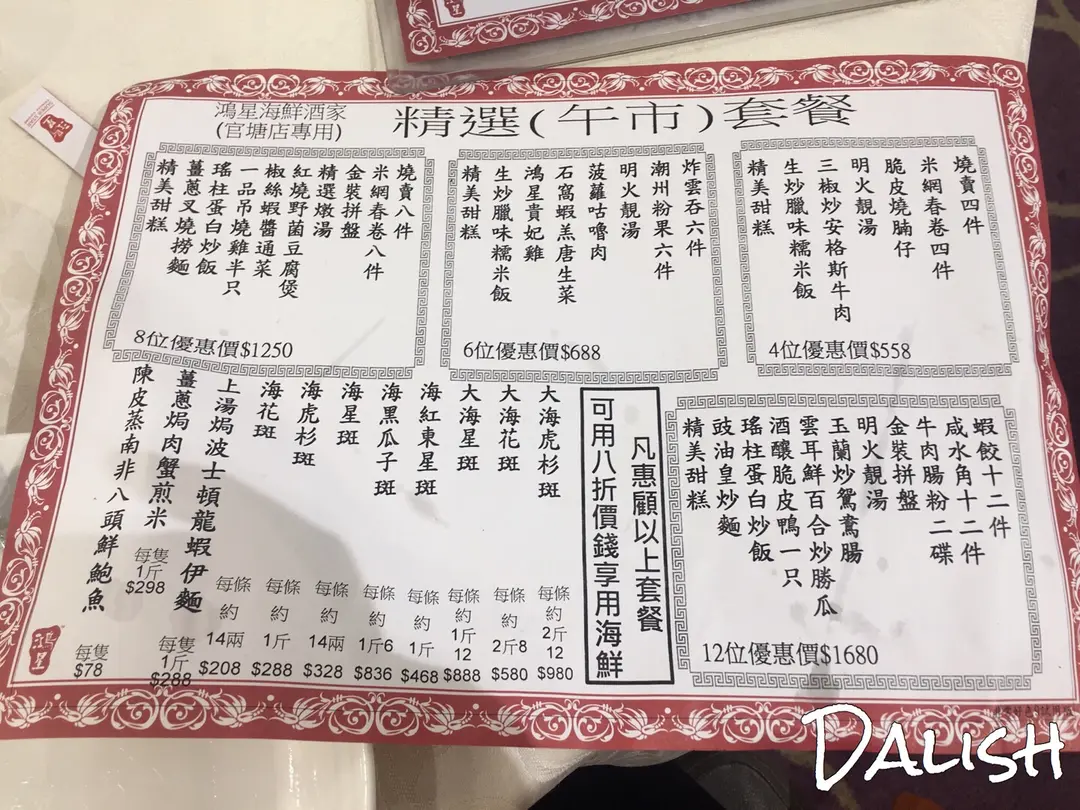 鴻星海鮮酒家
(官塘店專用)
精選(午市)套餐
燒賣四件
米網春卷四件
脆皮燒腩仔
明火靚湯
三椒炒安格斯牛肉
生炒臘味糯米飯
精美甜糕
4位優惠價$558
炸雲吞六件
潮州粉果六件
明火靚湯
菠蘿咕嚕肉
石窩蝦羔唐生菜
鴻星貴妃雞
生炒臘味糯米飯
精美甜糕
6位優惠價$688
燒賣八件
米網春卷八件
金裝拼盤
精選燉湯
紅燒野菌豆腐煲
椒絲蝦醬通菜
一品吊燒雞半只
瑤柱蛋白炒飯
薑蔥叉燒撈麵
精美甜糕
8位優惠價$1250
蝦餃十二件
咸水角十二件
牛肉腸粉二碟
金裝拼盤
明火靚湯
玉蘭炒鴛鴦腸
雲耳鮮百合炒勝瓜
酒釀脆皮鴨一只
瑤柱蛋白炒飯
豉油皇炒麵
精美甜糕
12位優惠價$1680
凡惠顧以上套餐
可用八折價錢享用海鮮
大海虎杉斑
每條
約
2斤
12
$980
大海花斑
每條
約
2斤8
$580
大海星斑
每條
約
1斤
12
$888
海紅東星斑
每條
約
1斤
$468
海黑瓜子斑
每條
約
1斤6
$836
海星斑
每條
約
14兩
$328
海虎杉斑
每條
約
1斤
$288
海花斑
每條
約
14兩
$208
上湯焗波士頓龍蝦伊麵
每隻
1斤
$288
薑蔥焗肉蟹煎米
每隻
1斤
$298
陳皮蒸南非八頭鮮鮑魚
每隻
$78
鴻星
DALISH